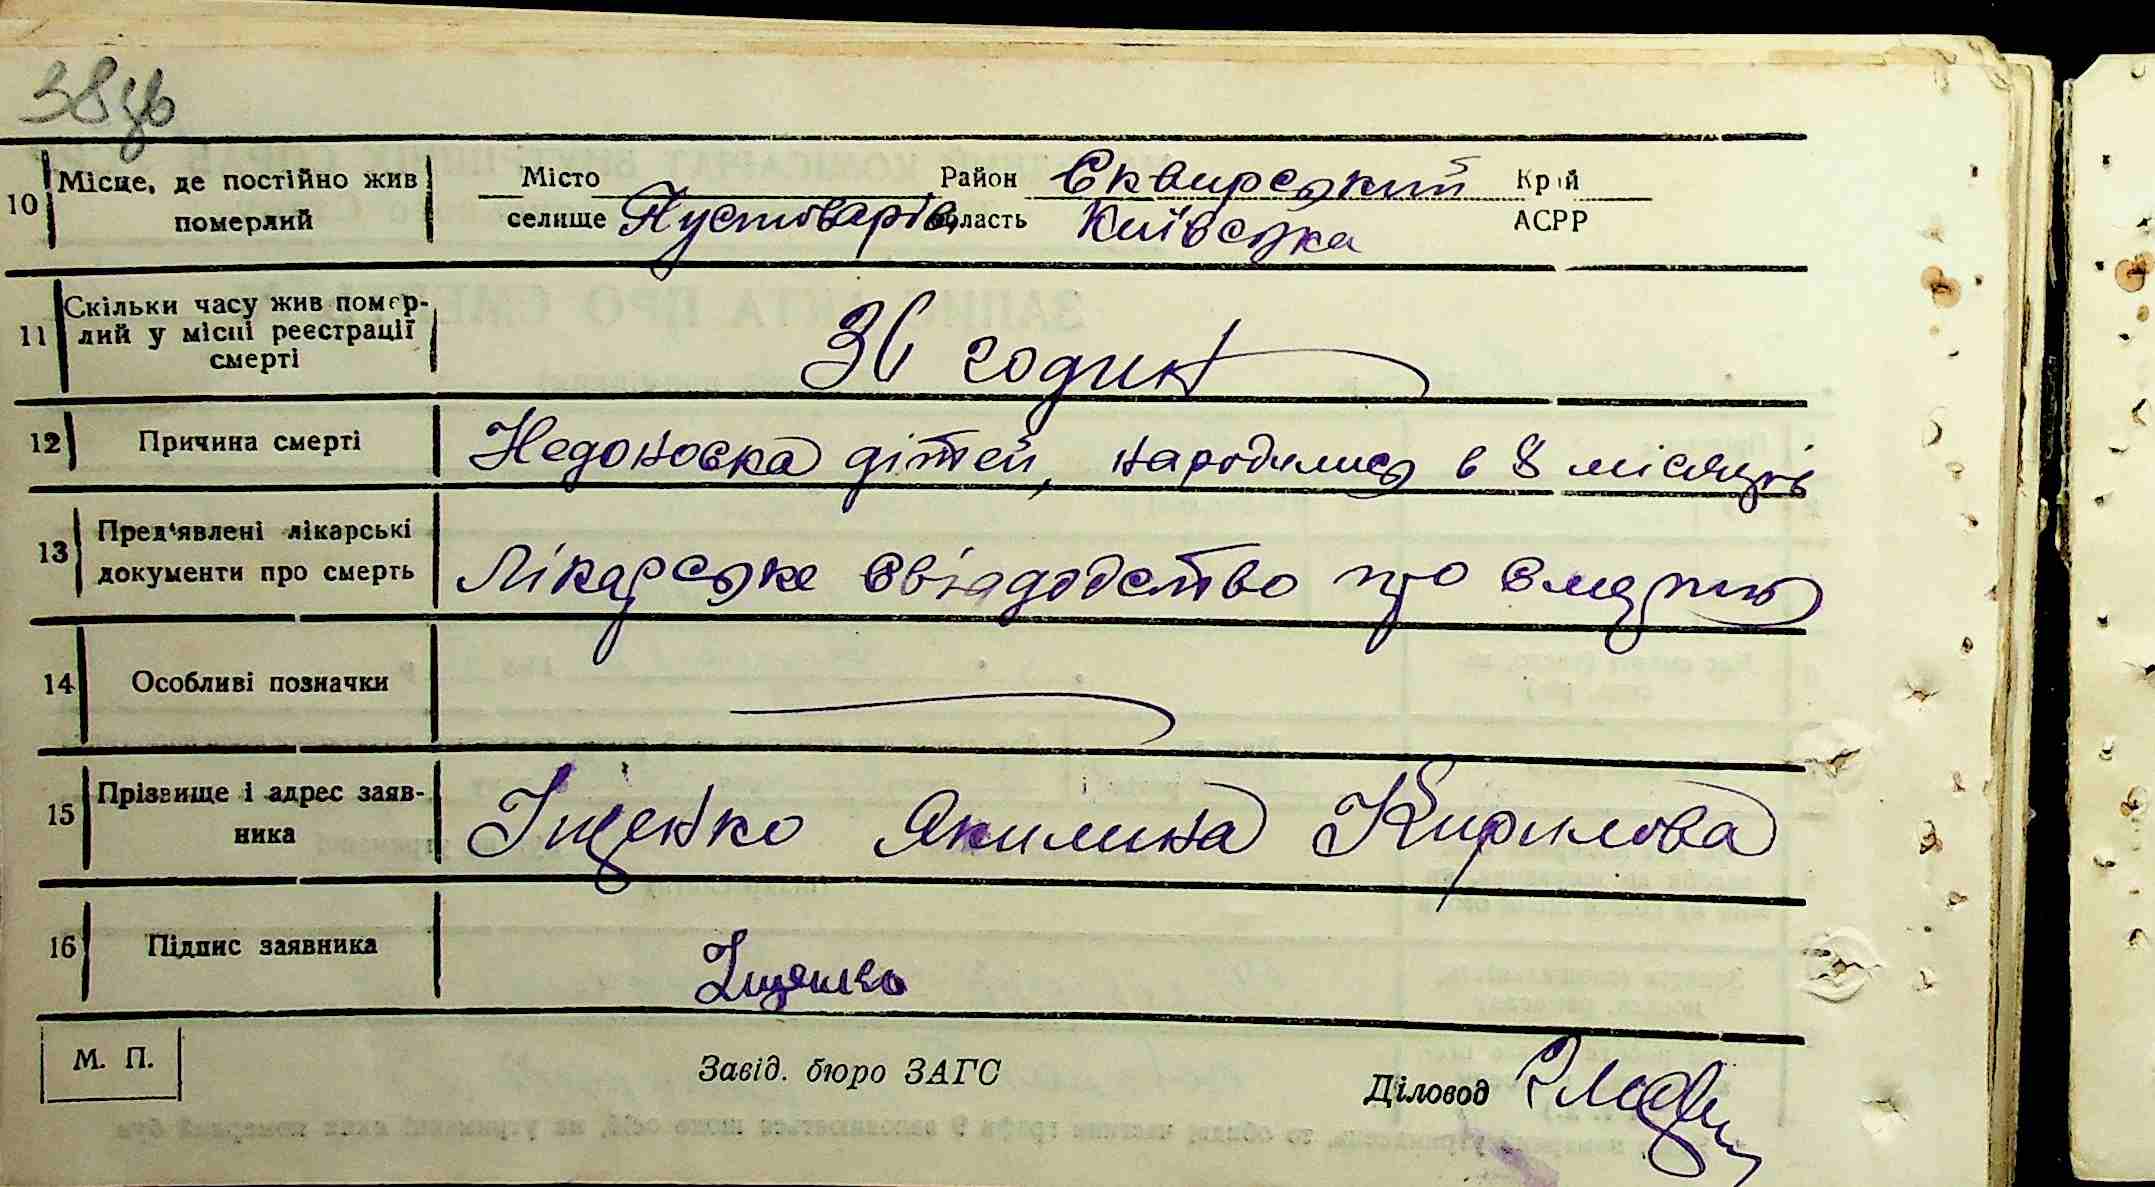 38 зв
10 Місце, де постійно жив Місто Район Сквирський Край
померлий селище Пустоварів область Київська АСРР
11 Скільки часу жив помер-
лий у місці реєстрації 36 годин
смерті
12 Причина смерті Недоноска дітей, народились в 8 місяців
13 Пред'явлені лікарські
документи про смерть Лікарське свіддодство про смерть
14 Особливі позначки
15 Прізвище і адрес заяв- Іщенко Якилина Кирилова
ника
16 Підпис заявника Іщенко
М. П. Завід. бюро ЗАГС Діловод